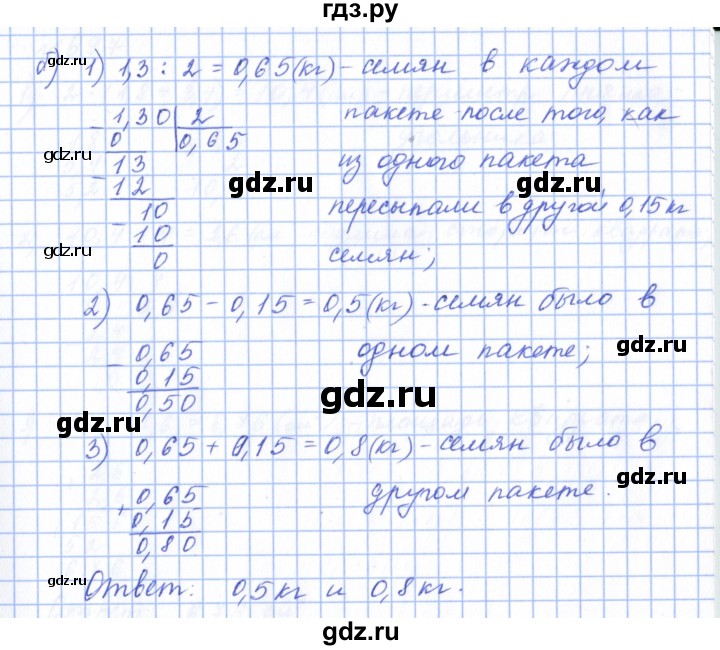 гдз.ру
б) 1) 1,3 : 2 = 0,65 (кг) - семян в каждом
пакете после того, как
из одного пакета
пересыпали в другой 0,15 кг
семян;
- 1,30 | 2
0 0,65
- 13
12
- 10
10
0
2) 0,65 - 0,15 = 0,5 (кг) - семян было в
одном пакете;
- 0,65
0,15
0,50
3) 0,65 + 0,15 = 0,8 (кг) - семян было в
другом пакете.
+ 0,65
0,15
0,80
Ответ: 0,5 кг и 0,8 кг.
gdz.ru
gdz.ru
gdz.ru
gdz.ru
gdz.ru
gdz.ru
gdz.ru
gdz.ru
gdz.ru
gdz.ru
gdz.ru
gdz.ru